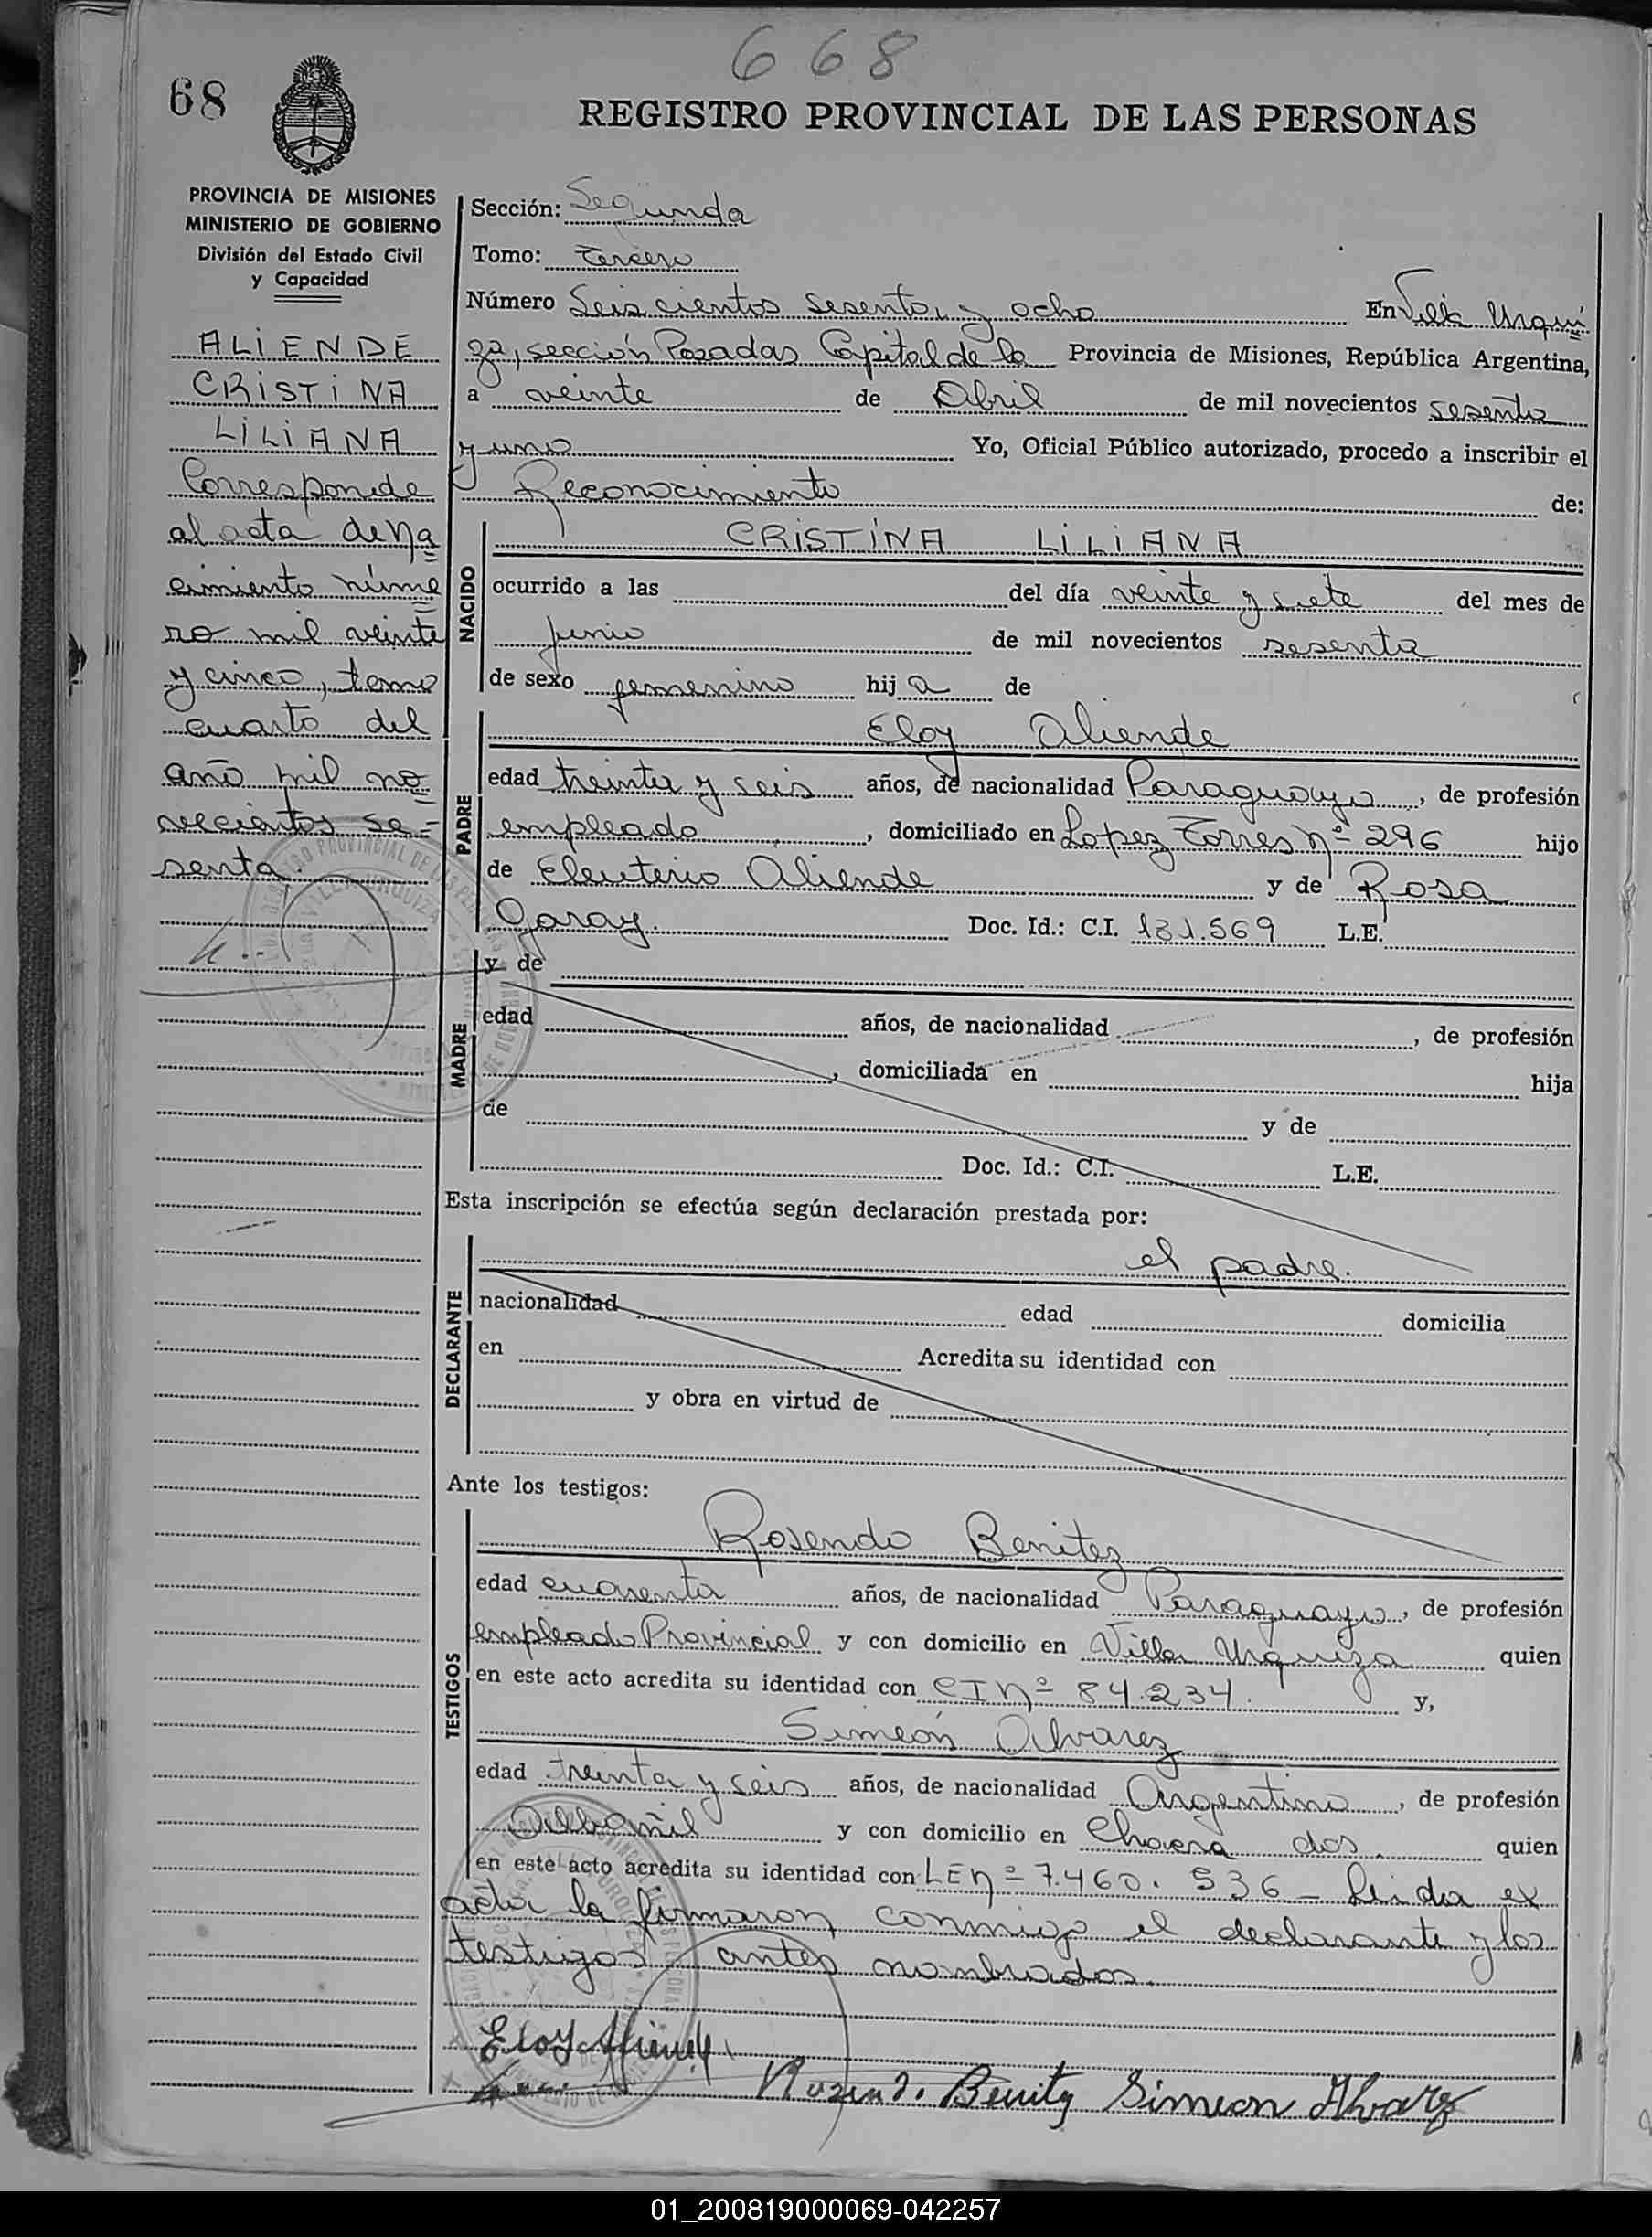 668
68
REGISTRO PROVINCIAL DE LAS PERSONAS
PROVINCIA DE MISIONES
MINISTERIO DE GOBIERNO
División del Estado Civil
y Capacidad
ALIENDE
CRISTINA
LILIANA
Corresponde
al acta de na
cimiento núme
ro mil veinte
y cinco, tomo
cuarto del
año mil no
vecientos se-
senta.
Sección: Segunda
Tomo: tercero
Número Seiscientos sesenta y ocho En Villa Urqui
za, sección Posadas Capital de la Provincia de Misiones, República Argentina,
a veinte de Abril de mil novecientos sesenta
y uno Yo, Oficial Público autorizado, procedo a inscribir el
Reconocimiento de:
NACIDO
CRISTINA LILIANA
ocurrido a las del día veinte y siete del mes de
junio de mil novecientos sesenta
de sexo femenino hija de
PADRE
Eloy Aliende
edad treinta y seis años, de nacionalidad Paraguayo, de profesión
empleado, domiciliado en Lopez Torres Nº 296 hijo
de Eleuterio Aliende y de Rosa
Garay. Doc. Id.: C.I. 131.569 L.E.
MADRE
y de
edad años, de nacionalidad , de profesión
, domiciliada en hija
de y de
Doc. Id.: C.I. L.E.
Esta inscripción se efectúa según declaración prestada por:
DECLARANTE
el padre.
nacionalidad edad domicilia
en Acredita su identidad con
y obra en virtud de
Ante los testigos:
TESTIGOS
Rosendo Benitez
edad cuarenta años, de nacionalidad Paraguayo, de profesión
empleado Provincial y con domicilio en Villa Urquiza quien
en este acto acredita su identidad con CI Nº 84.234. y,
Simeón Alvarez
edad treinta y seis años, de nacionalidad Argentino, de profesión
Albañil y con domicilio en Chacra dos. quien
en este acto acredita su identidad con LE Nº 7.460.536 - Leida el
acta la firmaron conmigo el declarante y los
testigos antes nombrados.
Eloy Aliende
Benitz Simeon Alvarez
01_200819000069-042257